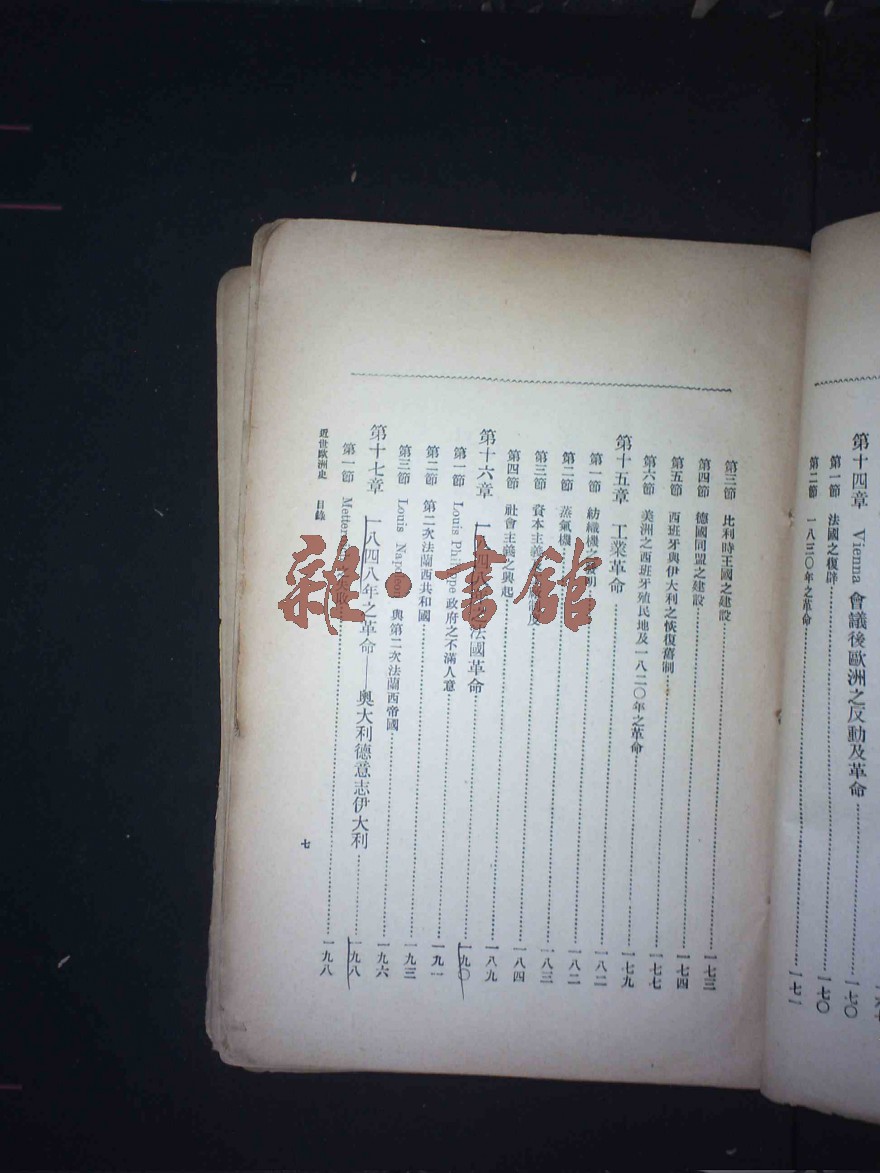 第十四章 Vienna會議後歐洲之反動及革命……一七〇
第一節 法國之復辟……一七〇
第二節 一八三〇年之革命……一七一
第三節 比利時王國之建設……一七三
第四節 德國同盟之建設……一七四
第五節 西班牙與伊大利之恢復舊制……一七七
第六節 美洲之西班牙殖民地及一八二〇年之革命……一七九
第十五章 工業革命……一八二
第一節 紡織機之發明……一八二
第二節 蒸氣機……一八三
第三節 資本主義……一八四
第四節 社會主義之興起……一八九
第十六章 一八四八 之法國革命……一九〇
第一節 Louis Philippe政府之不滿人意……一九一
第二節 第二次法蘭西共和國……一九三
第三節 Louis Napoleon與第二次法蘭西帝國……一九六
第十七章 一八四八年之革命——奧大利德意志伊大利……一九八
第一節 Metter……一九八
近世歐洲史 目錄
七
雜·書館